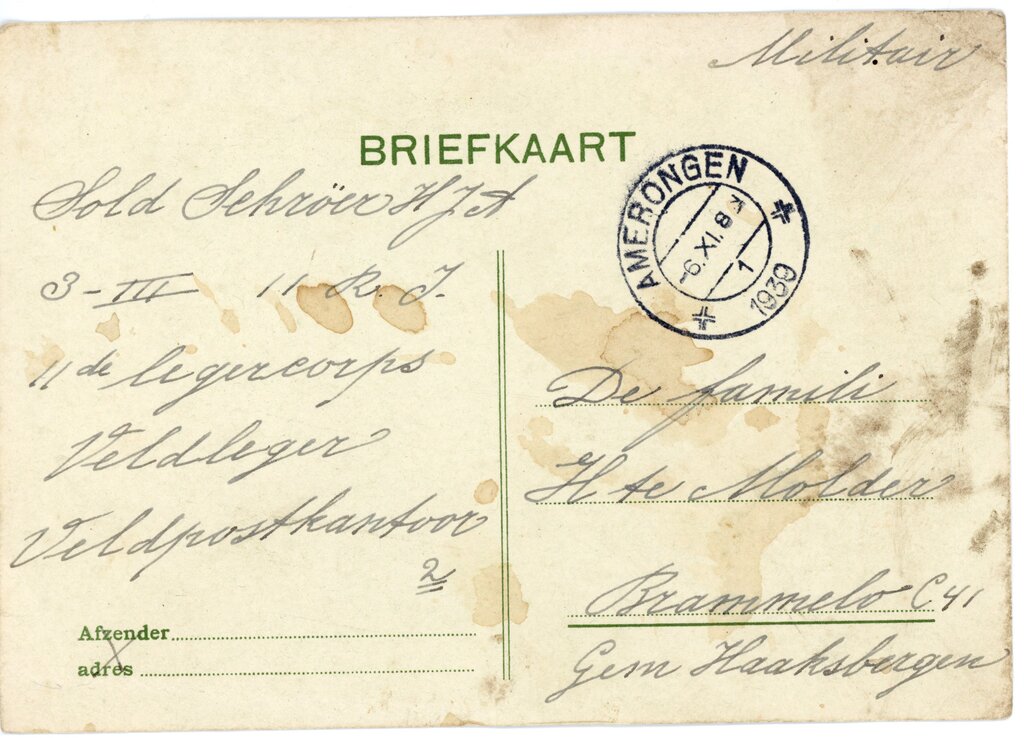 Militair
BRIEFKAART
Sold Schröer H J A
3-III 11 R. I.
11de legercorps
Veldleger
Veldpostkantoor
2
Afzender
adres
AMERONGEN
-6.XI.8 K
1
1939
De famili
H te Molder
Brammelo C 41
Gem Haaksbergen